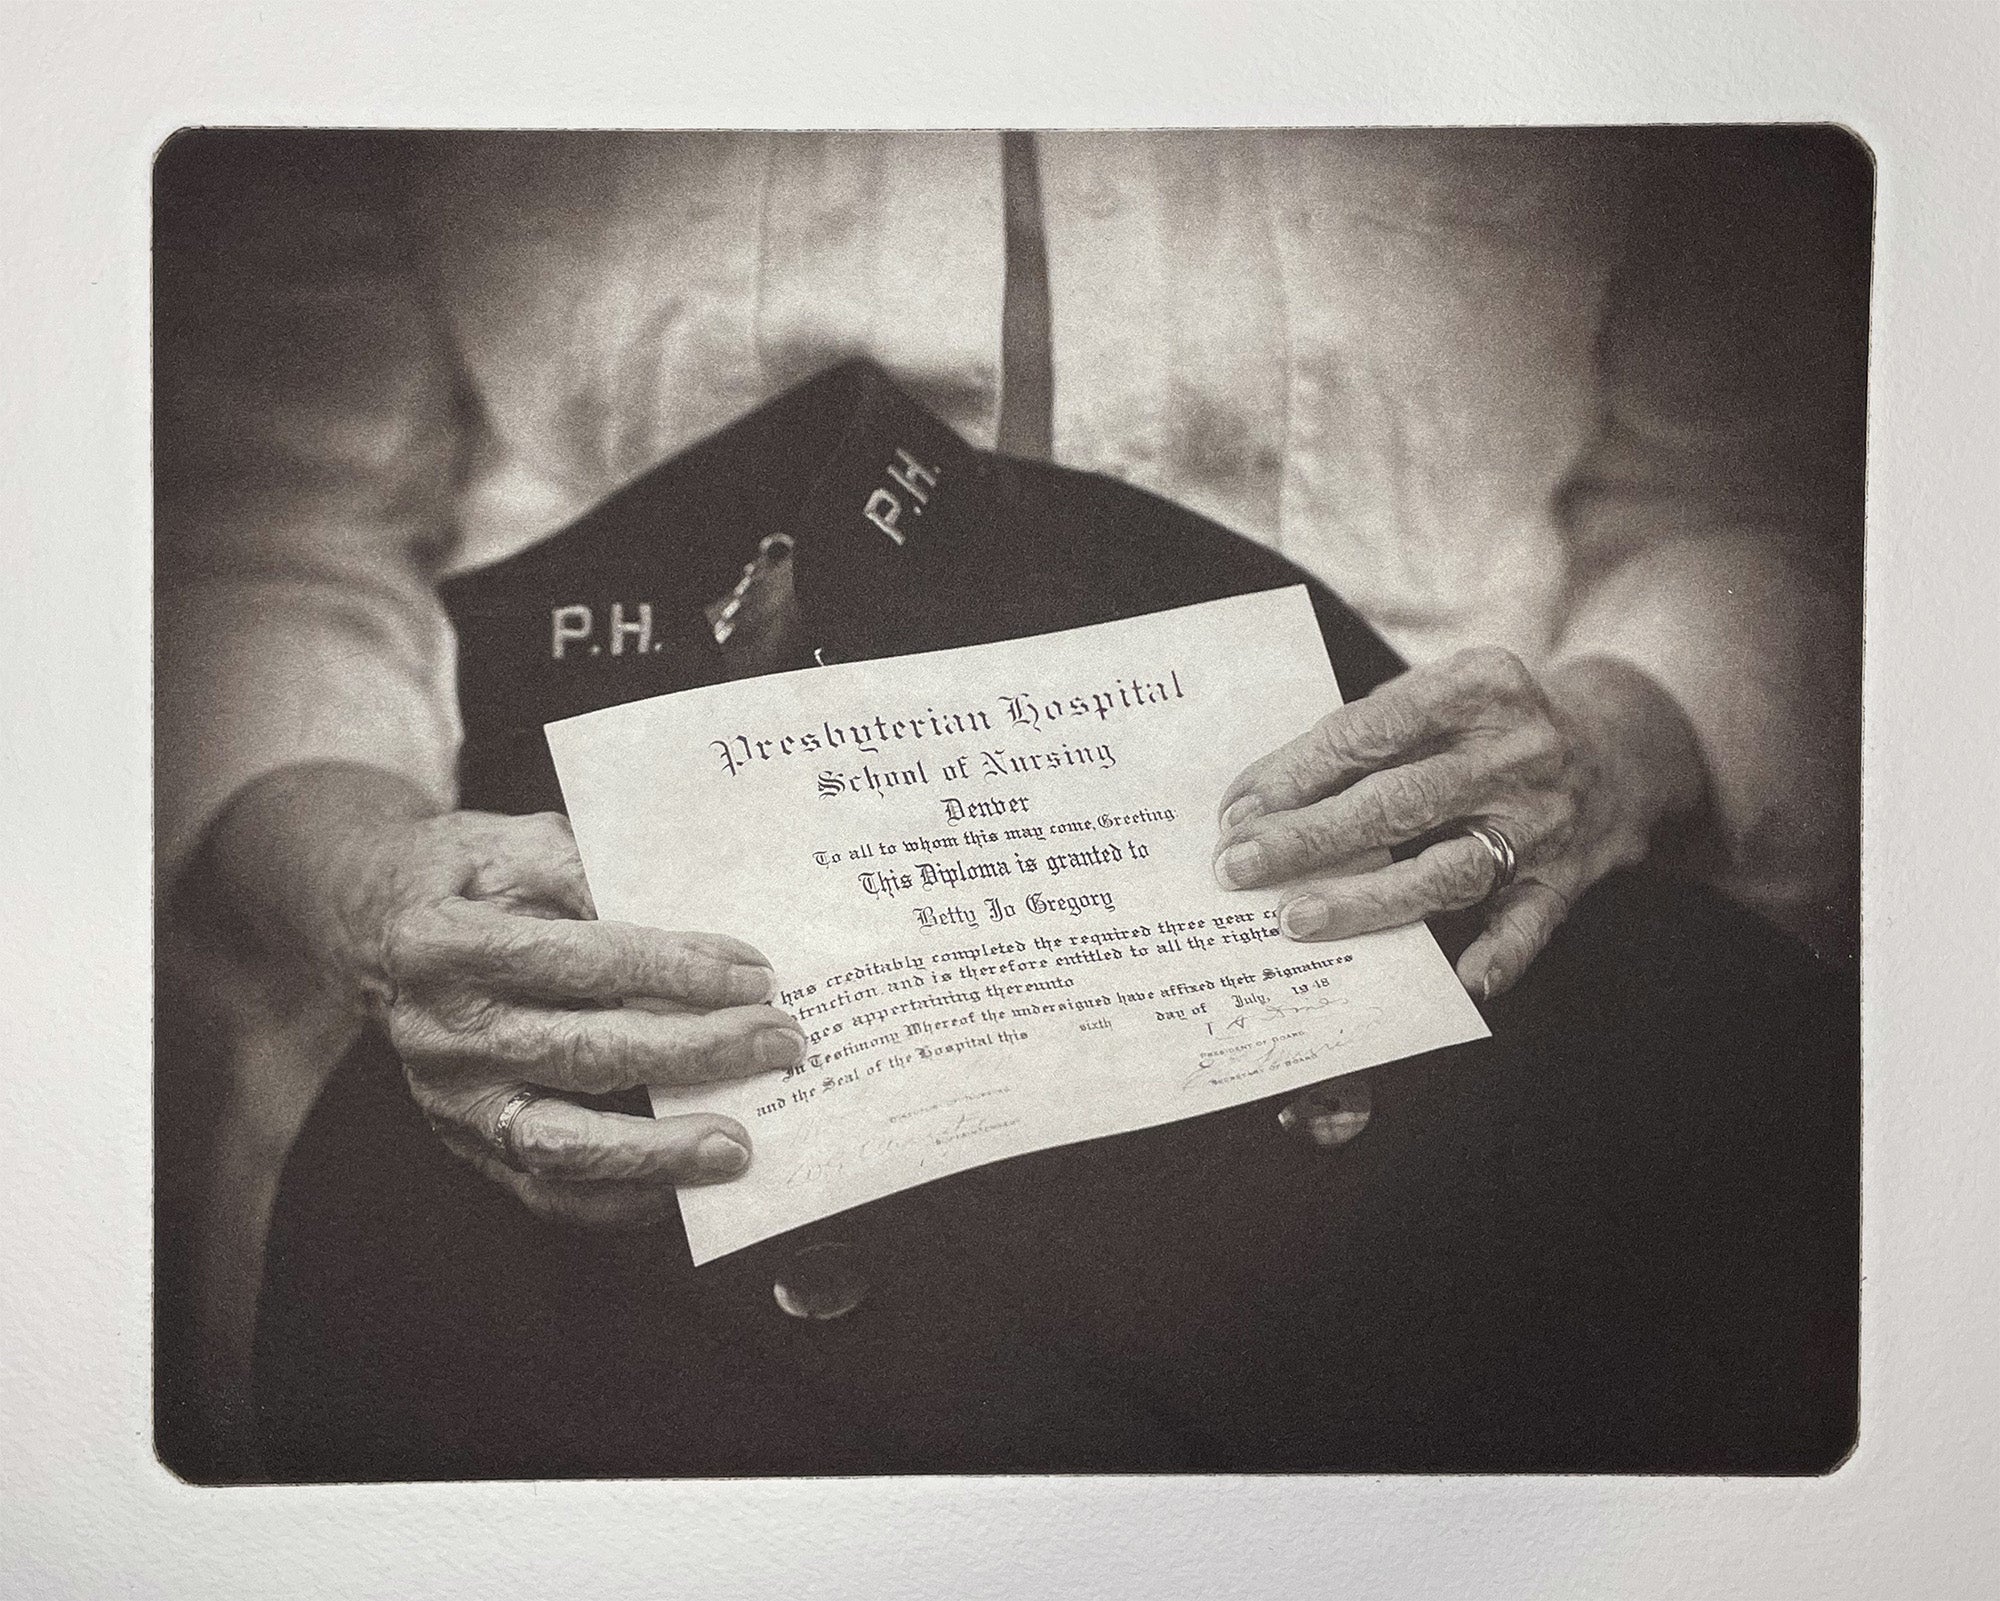 P.H.
P.H.
Presbyterian Hospital
School of Nursing
Denver
To all to whom this may come, Greeting
This Diploma is granted to
Betty Jo Gregory
has creditably completed the required three year
truction, and is therefore entitled to all the rights
ges appertaining thereunto
In Testimony Whereof the undersigned have affixed their Signatures
and the Seal of the Hospital this sixth day of July, 1948
PRESIDENT OF BOARD
SECRETARY OF BOARD
SUPERINTENDENT